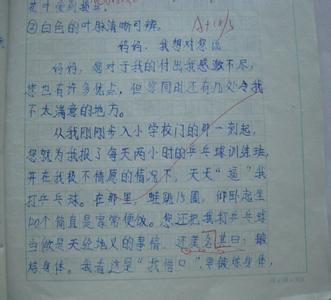 ②白色的叶脉清晰可辨。
妈妈，我想对您说
妈妈，您对于我的付出我感激不尽，
您也有许多优点，但您同时还有几处令我
不太满意的地方。
从我刚刚步入小学校门的那一刻起，
您就为我报了每天两小时的乒乓球训练班，
并在我极不情愿的情况下，天天“逼”我
打乒乓球。在那里，蛙跳15圈，仰卧起坐
120个简直是家常便饭。您还把我打乒乓球
当做是天经地义的事情，还美名其曰：锻
炼身体。我看这是“找借口”，要锻炼身体，